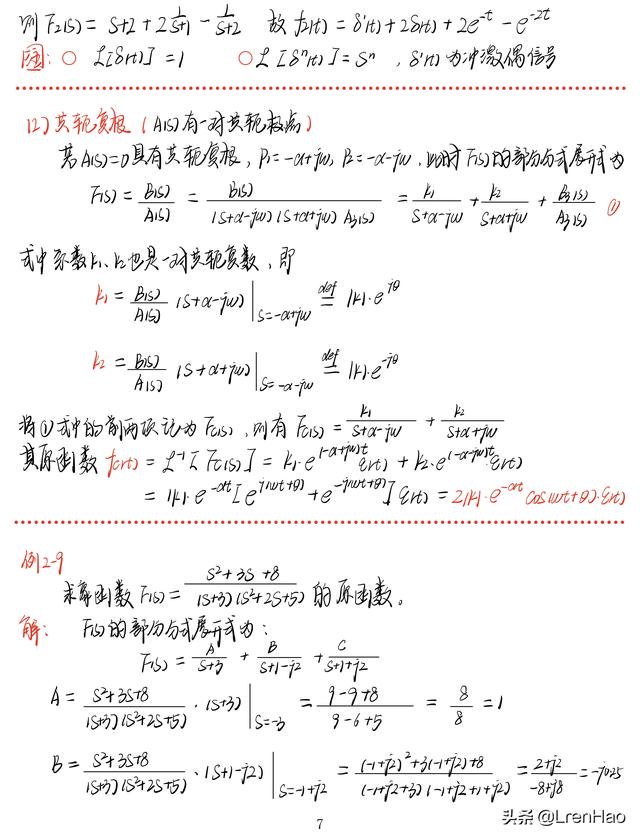 则 F₂(s) = s+2+2 1/(s+1) - 1/(s+2)  故 f₂(t) = δ'(t)+2δ(t)+2e^(-t) - e^(-2t)
○ ℒ[δ(t)] = 1  ○ ℒ[δⁿ(t)] = Sⁿ , δ'(t) 为冲激偶信号
(2) 共轭复根 (A(s)有一对共轭极点)
若A(s)=0具有共轭复根, P₁=-α+jω, P₂=-α-jω, 此时F(s)的部分分式展开式为
F(s) = B(s)/A(s) = B(s)/((s+α-jω)(s+α+jω)A₃(s)) = k₁/(s+α-jω) + k₂/(s+α+jω) + B₃(s)/A₃(s) ①
式中系数k₁、k₂也是一对共轭复数, 即
k₁ = B(s)/A(s) (s+α-jω)|s=-α+jω def= |k|·e^(jθ)
k₂ = B(s)/A(s) (s+α+jω)|s=-α-jω def= |k|·e^(-jθ)
将①式中的前两项记为Fc(s), 则有 Fc(s) = k₁/(s+α-jω) + k₂/(s+α+jω)
其原函数 fc(t) = ℒ⁻¹[Fc(s)] = k₁·e^((-α+jω)t)·ε(t) + k₂·e^((-α-jω)t)·ε(t)
= |k|·e^(-αt)[e^(j(ωt+θ)) + e^(-j(ωt+θ))]ε(t) = 2|k|·e^(-αt) cos(ωt+θ)·ε(t)
例2-9
求象函数 F(s) = (s²+3s+8)/((s+3)(s²+2s+5)) 的原函数。
解: F(s)的部分分式展开式为:
F(s) = A/(s+3) + B/(s+1-j2) + C/(s+1+j2)
A = (s²+3s+8)/((s+3)(s²+2s+5)) ·(s+3)|s=-3 = (9-9+8)/(9-6+5) = 8/8 = 1
B = (s²+3s+8)/((s+3)(s²+2s+5)) ·(s+1-j2)|s=-1+j2 = ((-1+j2)²+3(-1+j2)+8)/((-1+j2+3)(-1+j2+1+j2)) = (2+j2)/(-8+j8) = -j0.25
7
头条 @LrenHao